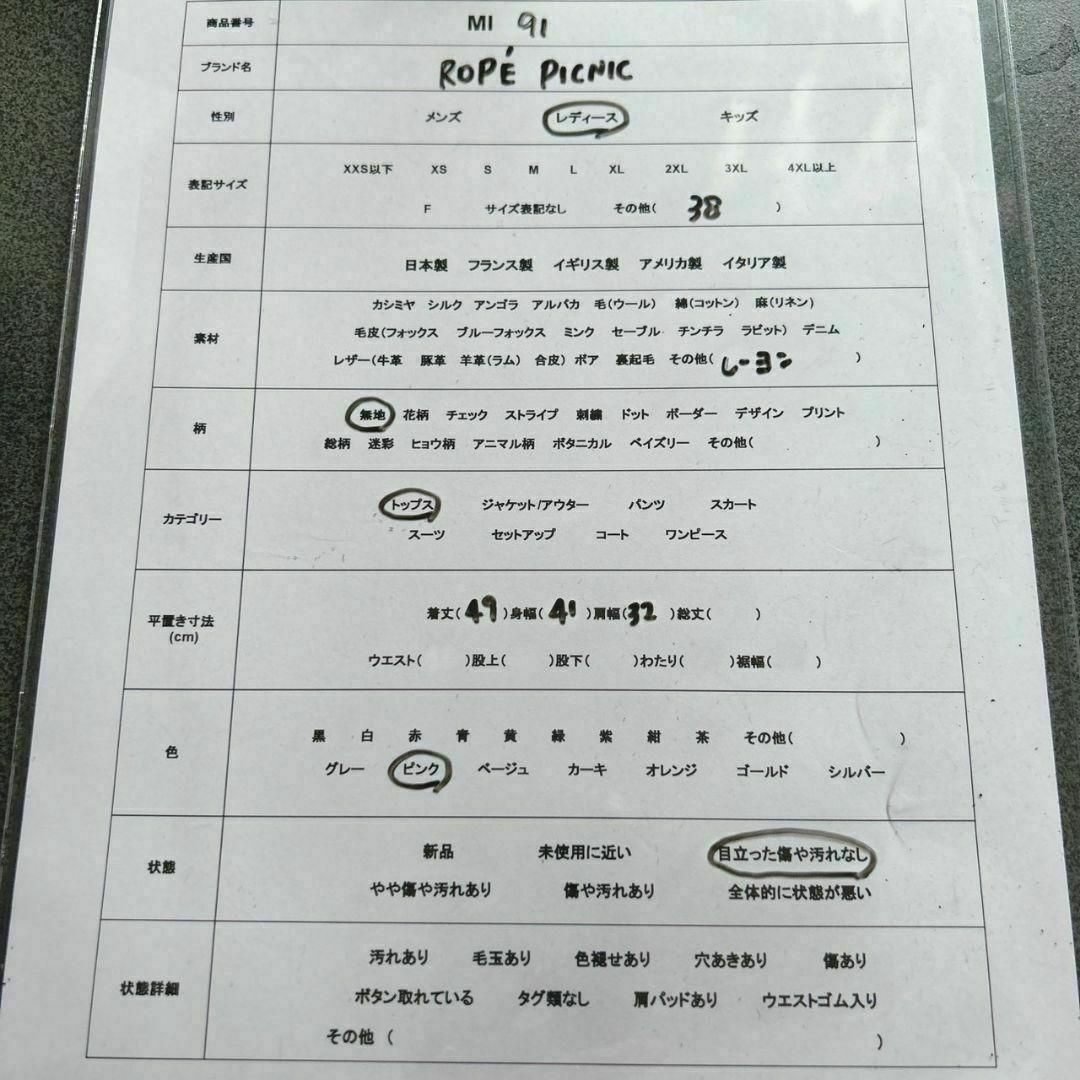 商品番号 MI 91
ブランド名 ROPÉ PICNIC
性別 メンズ レディース キッズ
表記サイズ
XXS以下 XS S M L XL 2XL 3XL 4XL以上
F サイズ表記なし その他( 38 )
生産国 日本製 フランス製 イギリス製 アメリカ製 イタリア製
素材
カシミヤ シルク アンゴラ アルパカ 毛(ウール) 綿(コットン) 麻(リネン)
毛皮(フォックス ブルーフォックス ミンク セーブル チンチラ ラビット) デニム
レザー(牛革 豚革 羊革(ラム) 合皮) ボア 裏起毛 その他( レーヨン )
柄
無地 花柄 チェック ストライプ 刺繍 ドット ボーダー デザイン プリント
総柄 迷彩 ヒョウ柄 アニマル柄 ボタニカル ペイズリー その他( )
カテゴリー
トップス ジャケット/アウター パンツ スカート
スーツ セットアップ コート ワンピース
平置き寸法
(cm)
着丈( 49 )身幅( 41 )肩幅( 32 )総丈( )
ウエスト( )股上( )股下( )わたり( )裾幅( )
色
黒 白 赤 青 黄 緑 紫 紺 茶 その他( )
グレー ピンク ベージュ カーキ オレンジ ゴールド シルバー
状態
新品 未使用に近い 目立った傷や汚れなし
やや傷や汚れあり 傷や汚れあり 全体的に状態が悪い
状態詳細
汚れあり 毛玉あり 色褪せあり 穴あきあり 傷あり
ボタン取れている タグ類なし 肩パッドあり ウエストゴム入り
その他 ( )